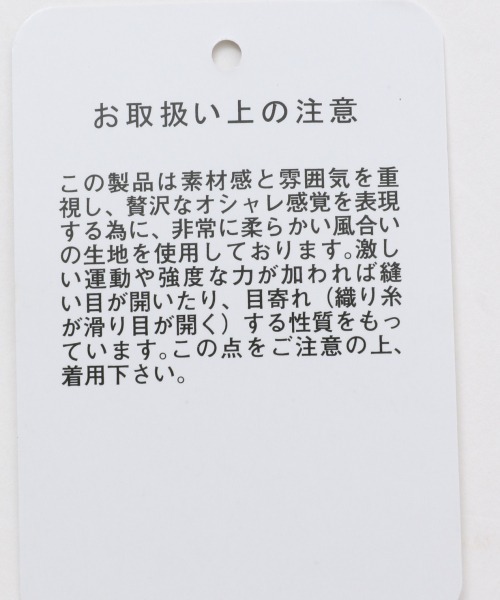 お取扱い上の注意
この製品は素材感と雰囲気を重
視し、贅沢なオシャレ感覚を表現
する為に、非常に柔らかい風合い
の生地を使用しております。激し
い運動や強度な力が加われば縫
い目が開いたり、目寄れ（織り糸
が滑り目が開く）する性質をもっ
ています。この点をご注意の上、
着用下さい。